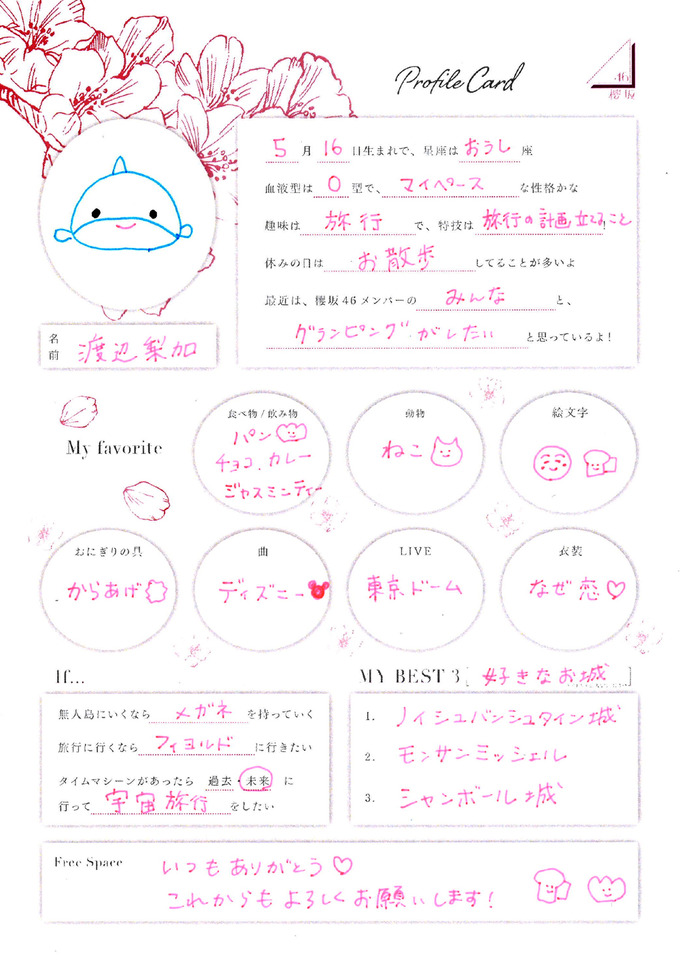 Profile Card
46
櫻坂
5月16日生まれで、星座はおうし座
血液型はO型で、マイペースな性格かな
趣味は旅行で、特技は旅行の計画立てること!
休みの日はお散歩してることが多いよ
最近は、櫻坂46メンバーのみんなと、
グランピングがしたいと思っているよ!
名前 渡辺梨加
My favorite
食べ物/飲み物
パン
チョコ、カレー
ジャスミンティー
動物
ねこ
絵文字
おにぎりの具
からあげ
曲
ディズニー
LIVE
東京ドーム
衣装
なぜ恋♡
If...
無人島にいくならメガネを持っていく
旅行に行くならフィヨルドに行きたい
タイムマシーンがあったら 過去・未来に
行って宇宙旅行をしたい
MY BEST 3 [好きなお城]
1. ノイシュバンシュタイン城
2. モンサンミッシェル
3. シャンボール城
Free Space
いつもありがとう♡
これからもよろしくお願いします!